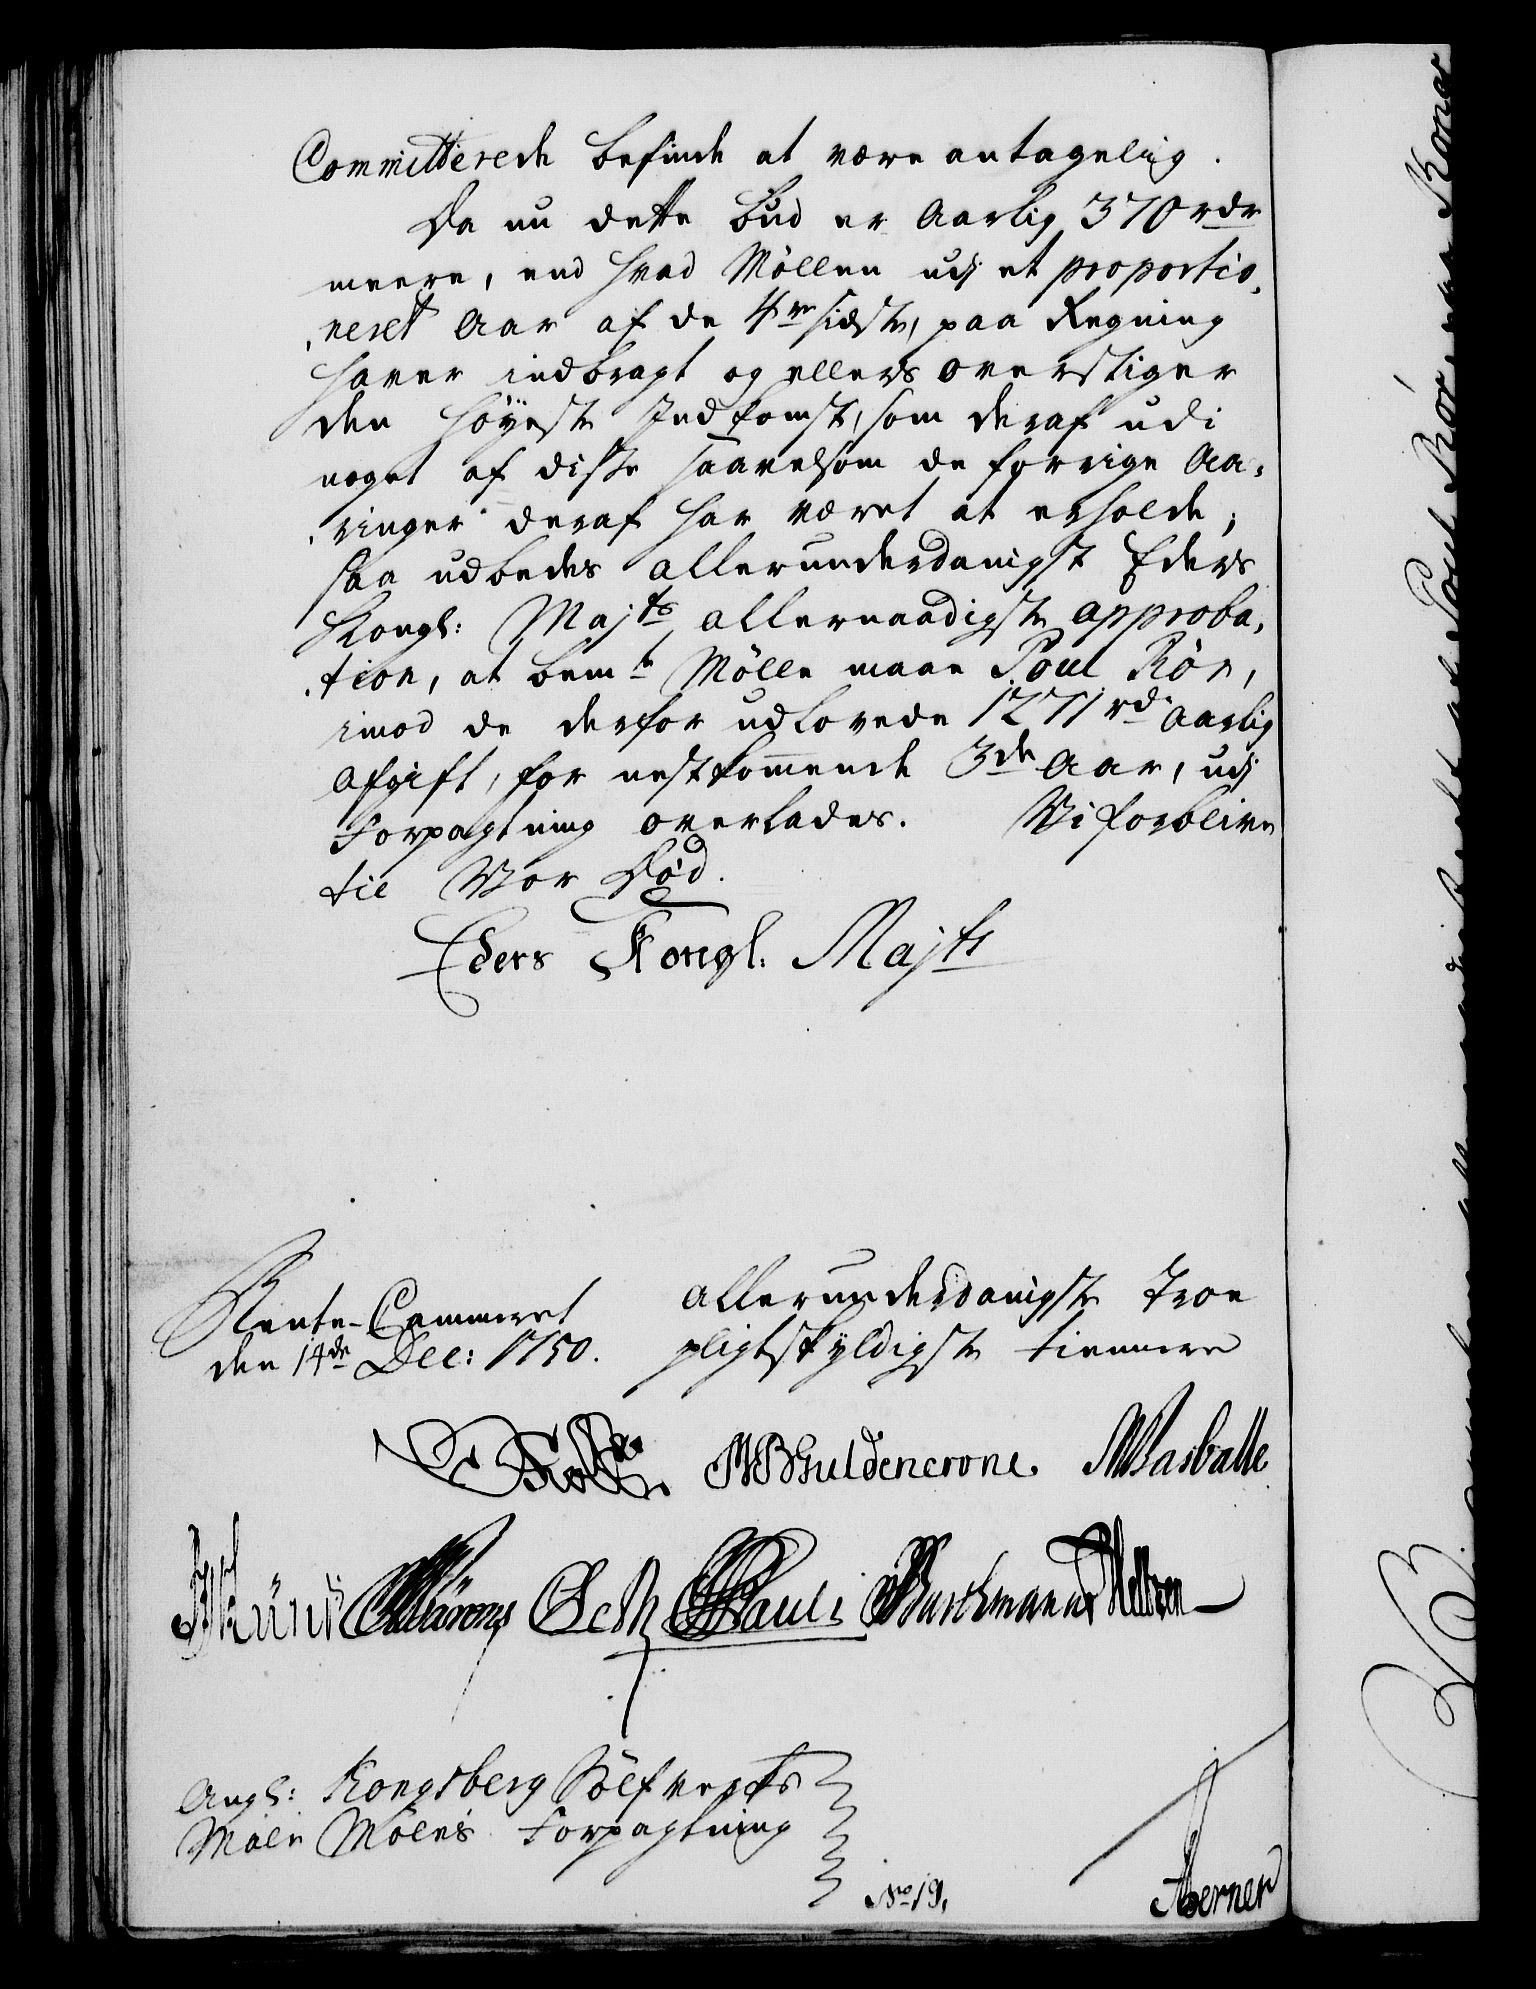 Committerede befinde at være antagelig.
Da nu dette bud er Aarlig 370 rdr
meere, end hvad Möllen udj et proportio,
,neret Aar af de 4re sidste, paa Regning
haver indbragt og ellers overstiger
den höyeste Indkomst, som deraf udi
noget af disse saavelsom de forrige Aa,
,ringer deraf har været at erholde;
saa udbedes allerunderdanigst Eders
Kongl: Majts allernaadigste approba,
,tion, at bemte Mölle maae Poul Rör,
imod de derfor udlovede 1271 rd Aarlig
Afgift, for nestkommende 3de Aar, udj
Forpagtning overlades. Vi forblive
til Vor Död.
Eders Kongl. Majts
Rente-Cammeret
den 14de Dec: 1750.
allerunderdanigste Troe
pligtskyldigste tiennere
Guldencrone. Wasballe
Pauli
Angl: Kongsberg Sölfverks
Male Möles Forpagtning
No 19,
Poul Rör